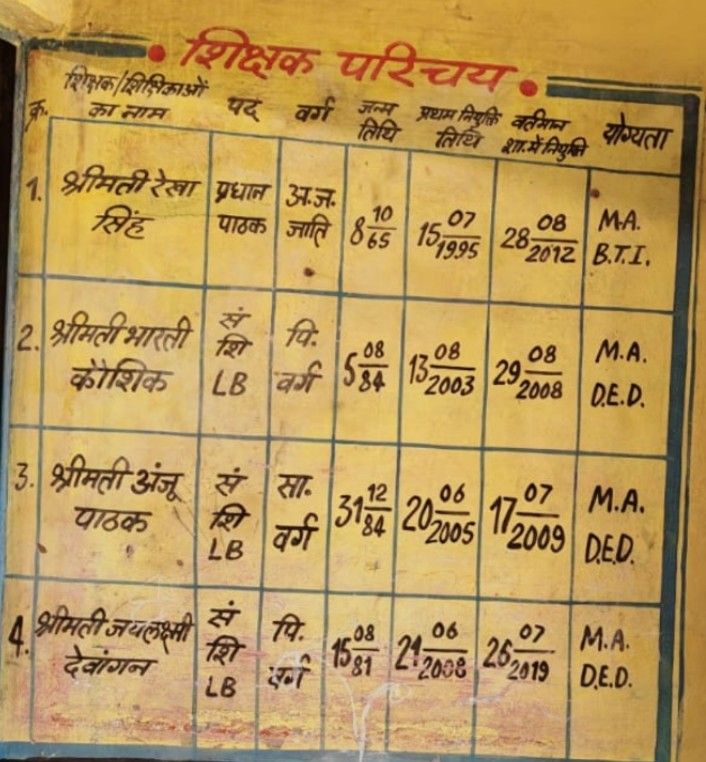 शिक्षक परिचय
क्र. शिक्षक/शिक्षिकाओं का नाम पद वर्ग जन्म तिथि प्रथम नियुक्ति तिथि वर्तमान शा. में नियुक्ति योग्यता
1. श्रीमती रेखा सिंह प्रधान पाठक अ.ज. जाति 8 10/65 15 07/1995 28 08/2012 M.A. B.T.I.
2. श्रीमती भारती कौशिक सं शि LB पि. वर्ग 5 08/84 13 08/2003 29 08/2008 M.A. D.E.D.
3. श्रीमती अंजू पाठक सं शि LB सा. वर्ग 31 12/84 20 06/2005 17 07/2009 M.A. D.E.D.
4. श्रीमती जयलक्ष्मी देवांगन सं शि LB पि. वर्ग 15 08/81 21 06/2008 26 07/2019 M.A. D.E.D.